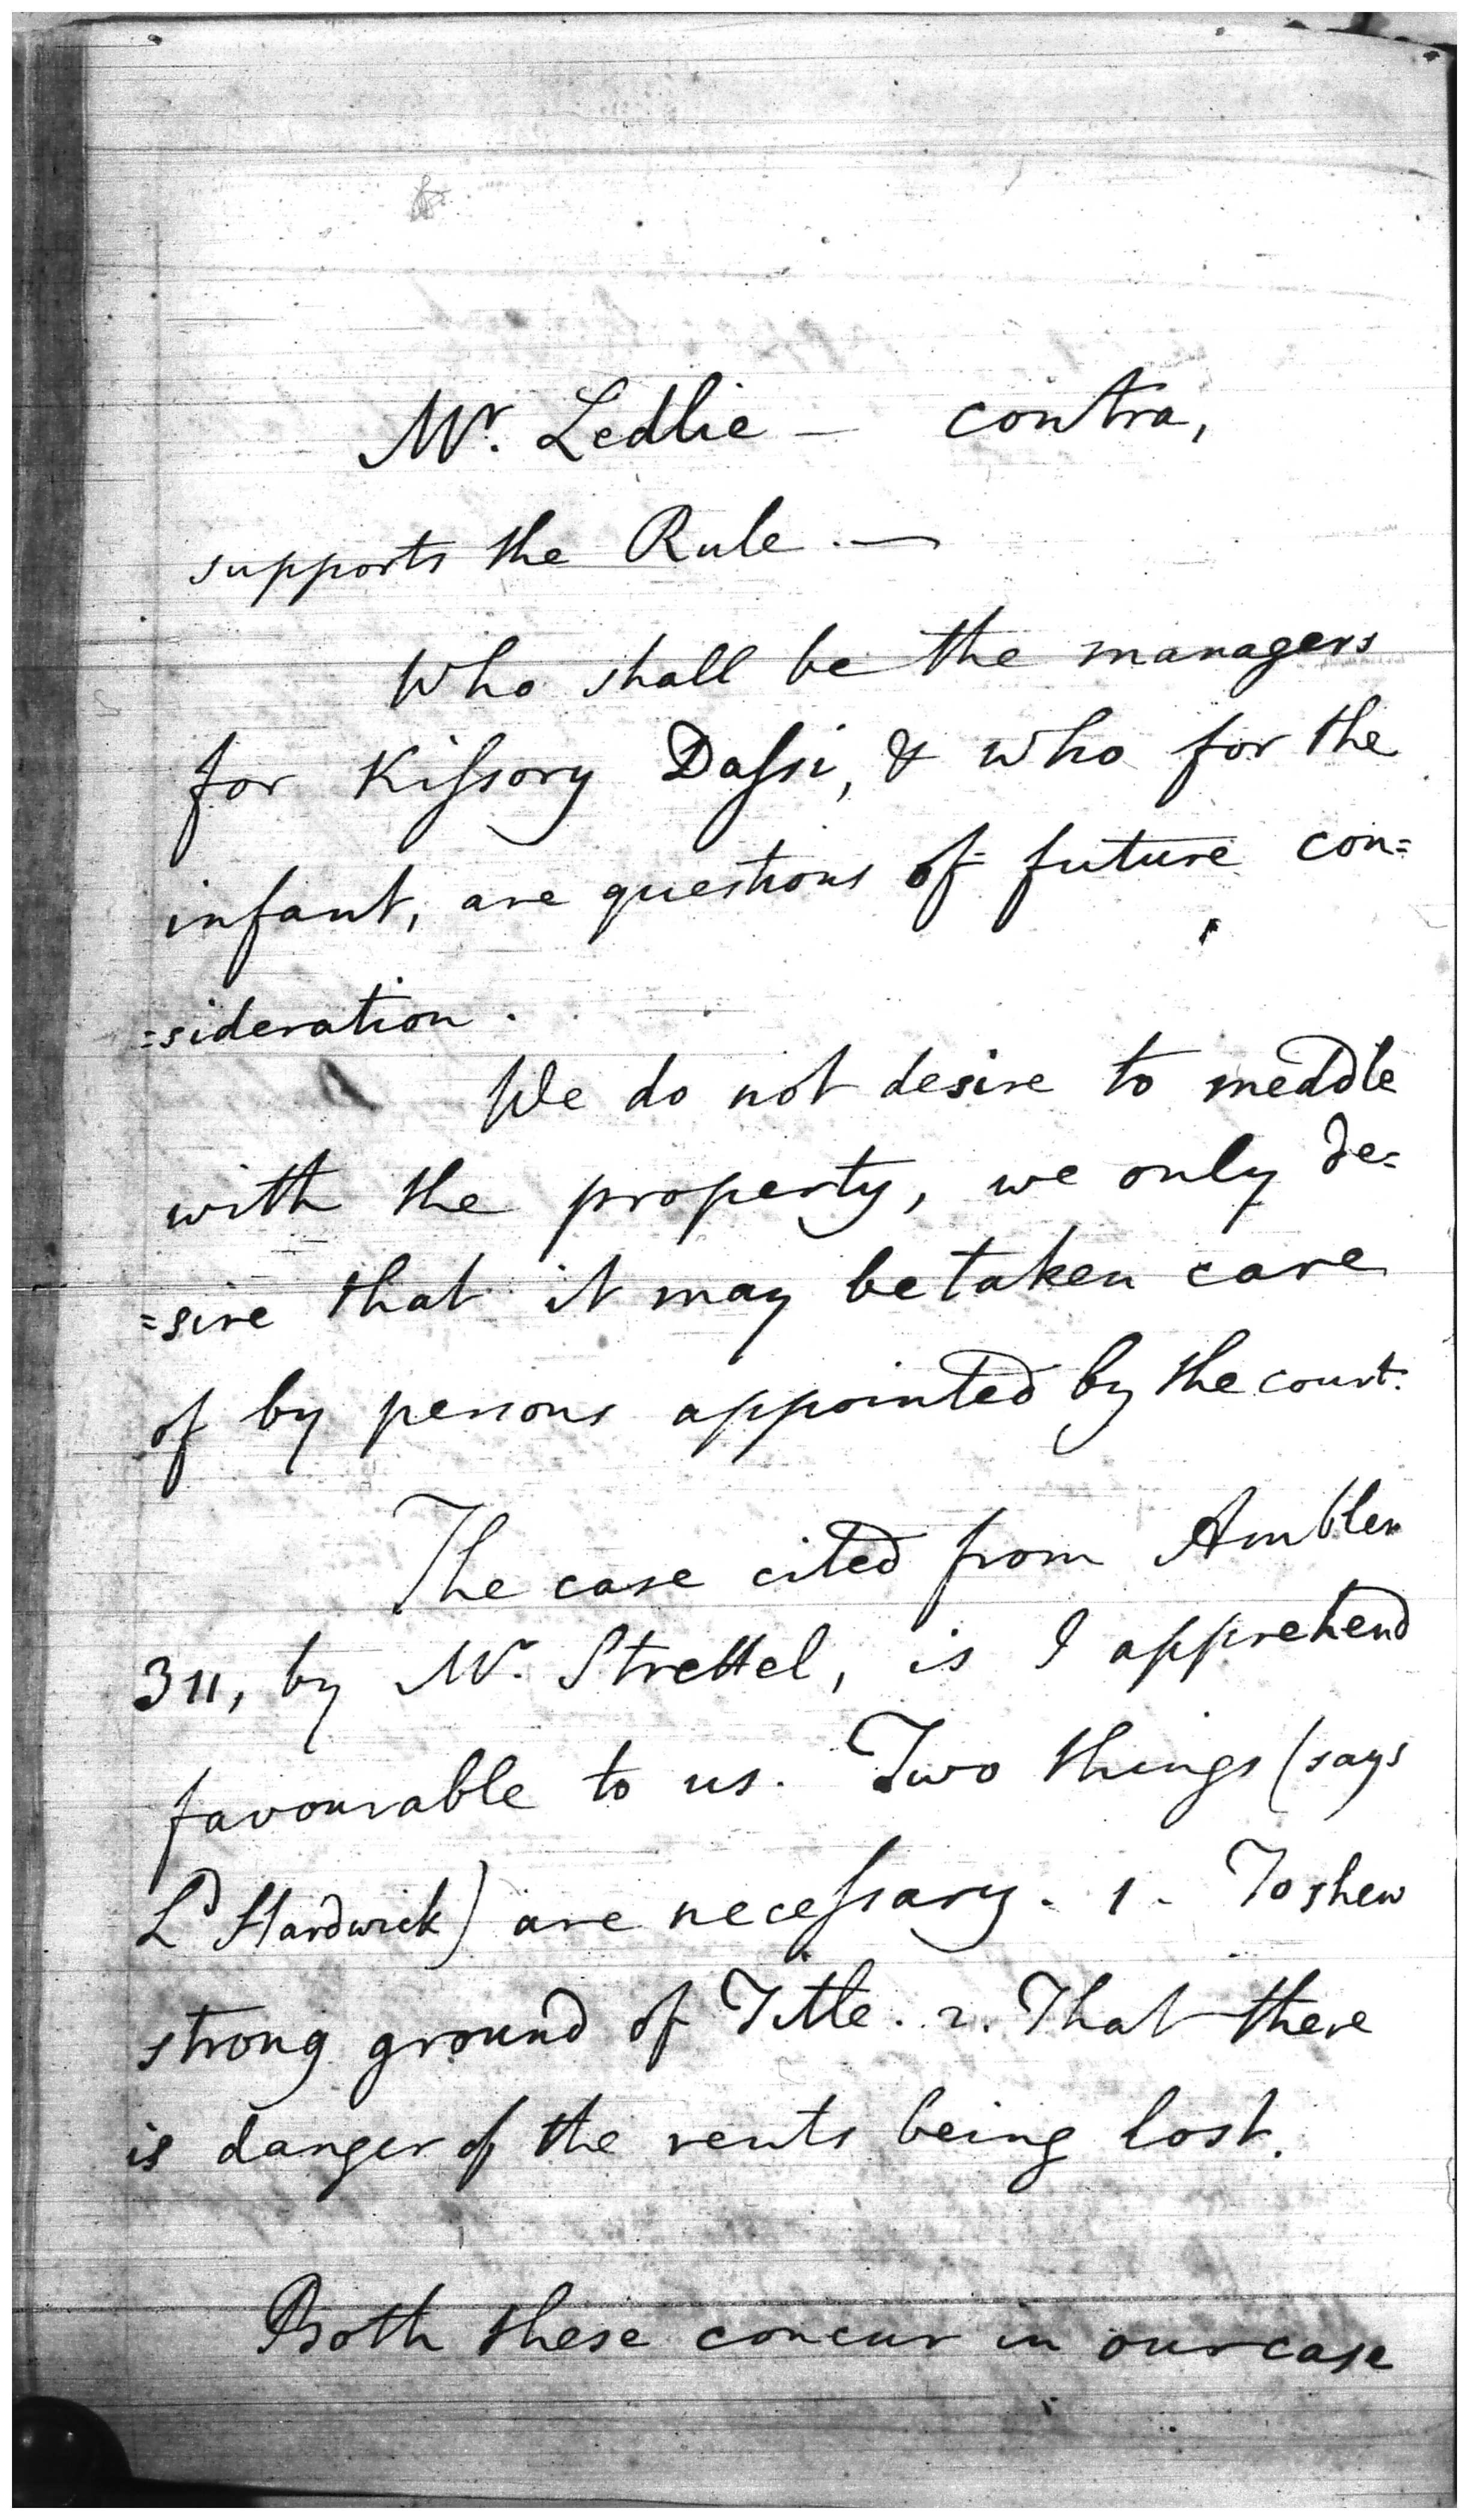 Mr. Ledlie — contra,
supports the Rule. —
Who shall be the managers
for Kiſsory Daſsi, & who for the
infant, are questions of future con=
=sideration.
We do not desire to meddle
with the property, we only de=
=sire that it may be taken care
of by persons appointed by the court.
The case cited from Ambler
311, by Mr. Strettel, is I apprehend
favourable to us. Two things (says
Ld Hardwick) are neceſsary. 1. To shew
strong ground of Title. 2. That there
is danger of the rents being lost.
Both these concur in our case